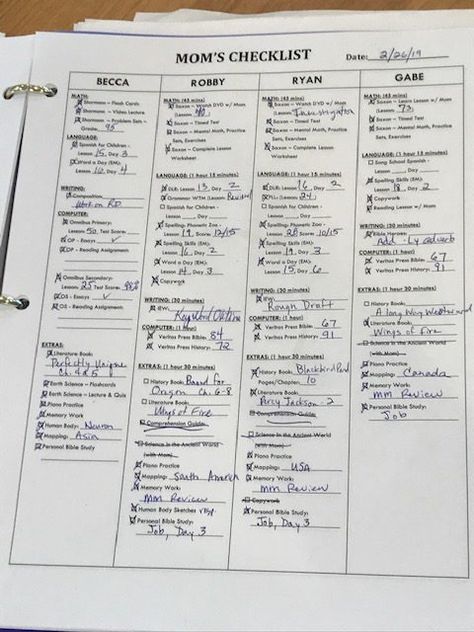 MOM'S CHECKLIST
Date: 2/26/19
BECCA
MATH:
Shormann - Flash Cards
Shormann - Video Lecture
Shormann - Problem Set -
Grade: 95
LANGUAGE:
Spanish for Children -
Lesson 15, Day 3
Word a Day (EM):
Lesson 10, Day 4
WRITING:
Composition
Work on RD
COMPUTER:
Omnibus Primary:
Lesson 50, Test Score:
OP - Essays ✓
OP - Reading Assignment:
Omnibus Secondary:
Lesson 25 Test Score: 88%
OS - Essays
OS - Reading Assignment:
EXTRAS:
Literature Book:
Perfectly Unique
Ch. 4 & 5
Earth Science - Flashcards
Earth Science - Lecture & Quiz
Piano Practice
Memory Work
Human Body: Neuron
Mapping: Asia
Personal Bible Study
ROBBY
MATH: (45 mins)
Saxon - Watch DVD w/ Mom
Lesson
Saxon - Timed Test
Saxon - Mental Math, Practice
Set, Exercises
Saxon - Complete Lesson
Worksheet
LANGUAGE: (1 hour 15 minutes)
DLR: Lesson 13, Day 2
Grammar WTM (Lesson Review)
Spanish for Children -
Lesson ___, Day ___
Spelling: Phonetic Zoo -
Lesson 19 Score 12/15
Spelling Skills (EM):
Lesson 16, Day 2
Word a Day (EM):
Lesson 14, Day 3
Copywork
WRITING: (30 minutes)
IEW:
Keyword Outline
COMPUTER: (1 hour)
Veritas Press Bible: 84
Veritas Press History: 72
EXTRAS: (1 hour 30 minutes)
History Book: Bound for
Oregon Ch. 6-8
Literature Book:
Wings of Fire
Comprehension Guide:
Science in the Ancient World
(with Mom)
Piano Practice
Mapping: South America
Memory Work:
MM Review
Human Body Sketches
Personal Bible Study:
Job, Day 3
RYAN
MATH: (45 mins)
Saxon - Watch DVD w/ Mom
Lesson Investigation
Saxon - Timed Test
Saxon - Mental Math, Practice
Set, Exercises
Saxon - Complete Lesson
Worksheet
LANGUAGE: (1 hour 15 minutes)
DLR: Lesson 16, Day 2
Spanish for Children -
Lesson ___, Day ___
Spelling: Phonetic Zoo -
Lesson 28 Score 10/15
Spelling Skills (EM):
Lesson 19, Day 3
Word a Day (EM):
Lesson 15, Day 6
WRITING: (30 minutes)
IEW:
Rough Draft
COMPUTER: (1 hour)
Veritas Press Bible: 67
Veritas Press History: 91
EXTRAS: (1 hour 30 minutes)
History Book: Blackbird Pond
Pages/Chapters: 10
Literature Book:
Percy Jackson - 2
Comprehension Guide:
Science in the Ancient World
(with Mom)
Piano Practice
Mapping: USA
Memory Work:
MM Review
Copywork
Personal Bible Study:
Job, Day 3
GABE
MATH: (45 mins)
Saxon - Learn Lesson w/ Mom
Lesson 73
Saxon - Timed Test
Saxon - Mental Math, Practice
Set, Exercises
LANGUAGE:
Song School Spanish -
Lesson ___, Day ___
Spelling Skills (EM):
Lesson 18, Day 2
Copywork
Reading Lesson w/ Mom
WRITING:
Bible Heroes
Add -ly adverb
COMPUTER: (1 hour)
Veritas Press Bible: 67
Veritas Press History: 91
EXTRAS: (1 hour 30 minutes)
History Book:
A Long Way Westward
Literature Book:
Wings of Fire
Science in the Ancient World
(with Mom)
Piano Practice
Mapping:
Canada
Memory Work:
MM Review
Personal Bible Study:
Job